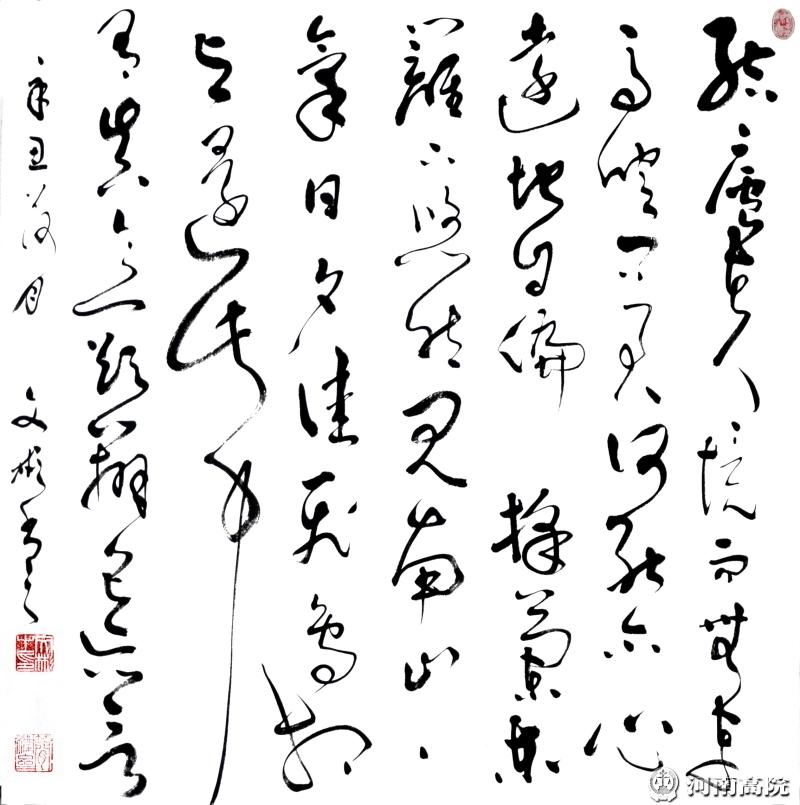 結廬在人境而無車
馬喧問君何能尔心
遠地自偏採菊東
籬下悠然見南山、
氣日夕佳飛鳥相
与還此中
有真意欲辯已忘言
辛丑荷月 文彬書
河南高院